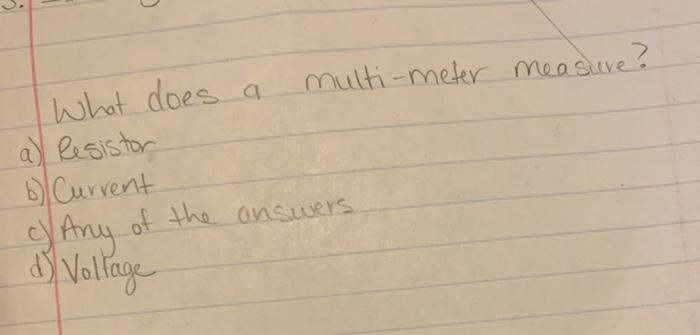 What does a multi-meter measure?
a) Resistor
b) Current
c) Any of the answers
d) Voltage